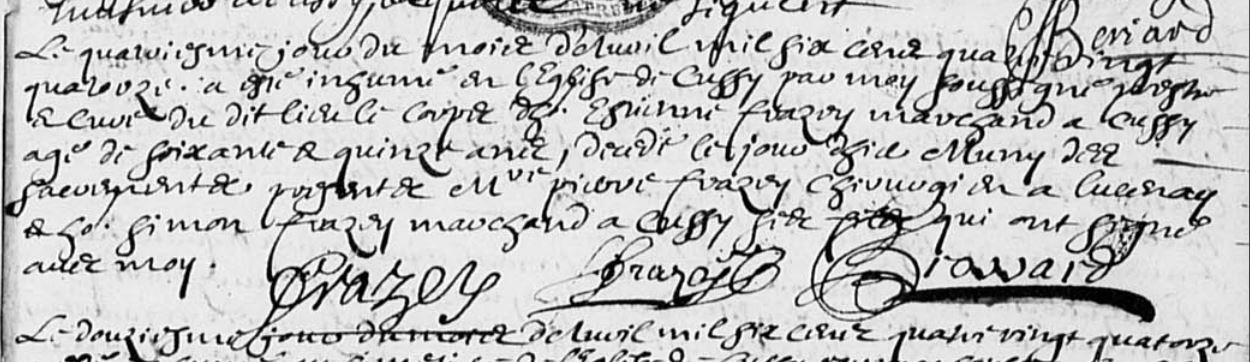 signèrent
Le quatriesme jour du mois d'avril mil six cens quatre vingt
quatorze. a esté inhumé en l'Eglise de Cussy par moy soussigné prestre
& curé du dit lieu le corps d'ho. Estienne frazey marchand a Cussy
agé de soixante & quinze ans, decedé le jour d'hier Muny des
sacrements, presents Mre pierre frazey chirurgien a lucenay
& ho. simon frazey marchand a Cussy ses fils qui ont signé
avec moy.
Frazey Frazey
Le douziesme jour du mois d'avril mil six cens quatre vingt quatorze